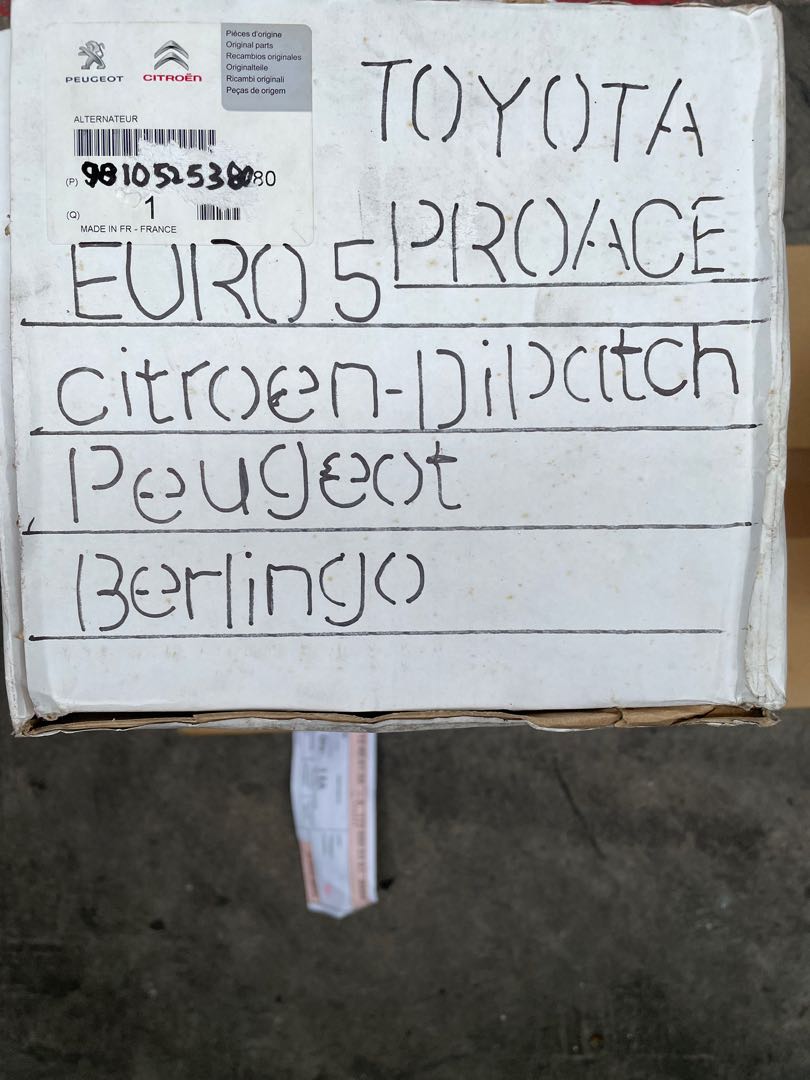 PEUGEOT
CITROËN
Pièces d'origine
Original parts
Recambios originales
Originalteile
Ricambi originali
Peças de origem
ALTERNATEUR
(P) 9810525380 80
(Q) 1
MADE IN FR - FRANCE
TOYOTA
PROACE
EURO 5
citroen-Dipatch
Peugeot
Berlingo